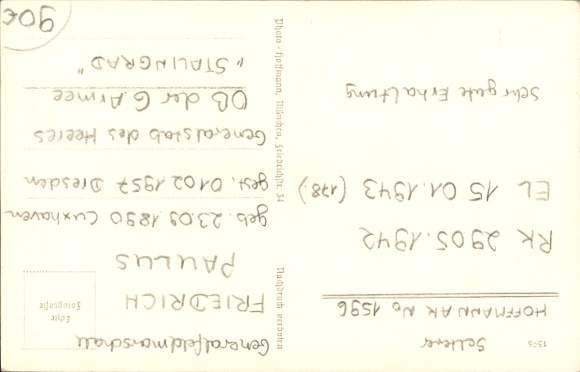 1596
Seltener
HOFFMANN AK No. 1596
RK 29 05.1942
EL 15 01.1943 (178.)
Sehr gute Erhaltung
Nachdruck verboten
Photo-Hoffmann, München, Friedrichstr. 34
Generalfeldmarschall
FRIEDRICH
PAULUS
Echte
Fotografie
geb. 23.09.1890 Cuxhaven
gest. 01.02.1957 Dresden
Generalstab des Heeres
OB der 6 Armee
"STALINGRAD"
90€